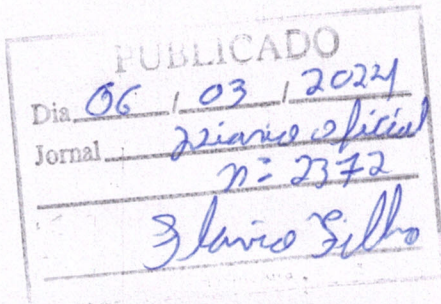 PUBLICADO
Dia 06 / 03 / 2024
Jornal Diario oficial
n= 2372
Flavio Filho